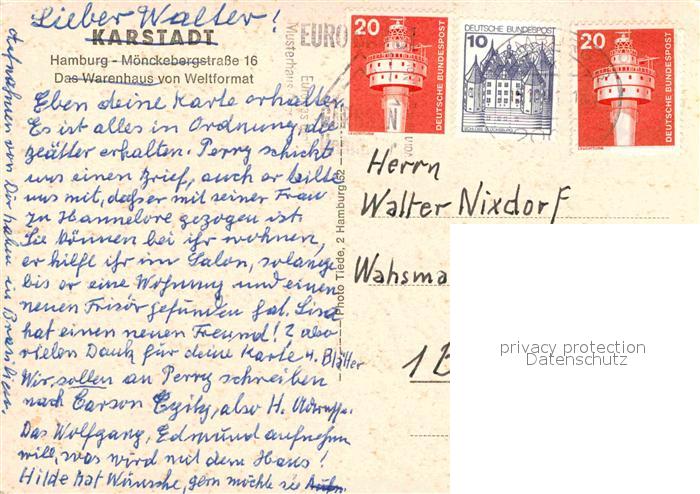 Lieber Walter!
KARSTADT
Hamburg - Mönckebergstraße 16
Das Warenhaus von Weltformat
Eben deine Karte erhalten.
Es ist alles in Ordnung, die
Blätter erhalten. Perry schickt
uns einen Brief, auch er teilte
uns mit, daß er mit seiner Frau
zu Hannelore gezogen ist.
Sie können bei ihr wohnen,
er hilft ihr im Salon, solange
bis er eine Wohnung und einen
neuen Frisör gefunden hat. Lisa
hat einen neuen Freund! 2 also
vielen Dank für deine Karte u. Blätter
Wir sollen an Perry schreiben
nach Carson City, also H. Adresse.
Das Wolfgang, Edmund aufnehmen
will, was wird mit dem Haus!
Hilde hat Wünsche, gern möchte sie
Aufnehmen von Dir haben in
Photo Tiede, 2 Hamburg 52
EURO
20
DEUTSCHE BUNDESPOST
LEUCHTTURM
DEUTSCHE BUNDESPOST
10
SCHLOSS GLÜCKSBURG
20
DEUTSCHE BUNDESPOST
LEUCHTTURM
Herrn
Walter Nixdorf
Wahsma
1 B
privacy protection
Datenschutz